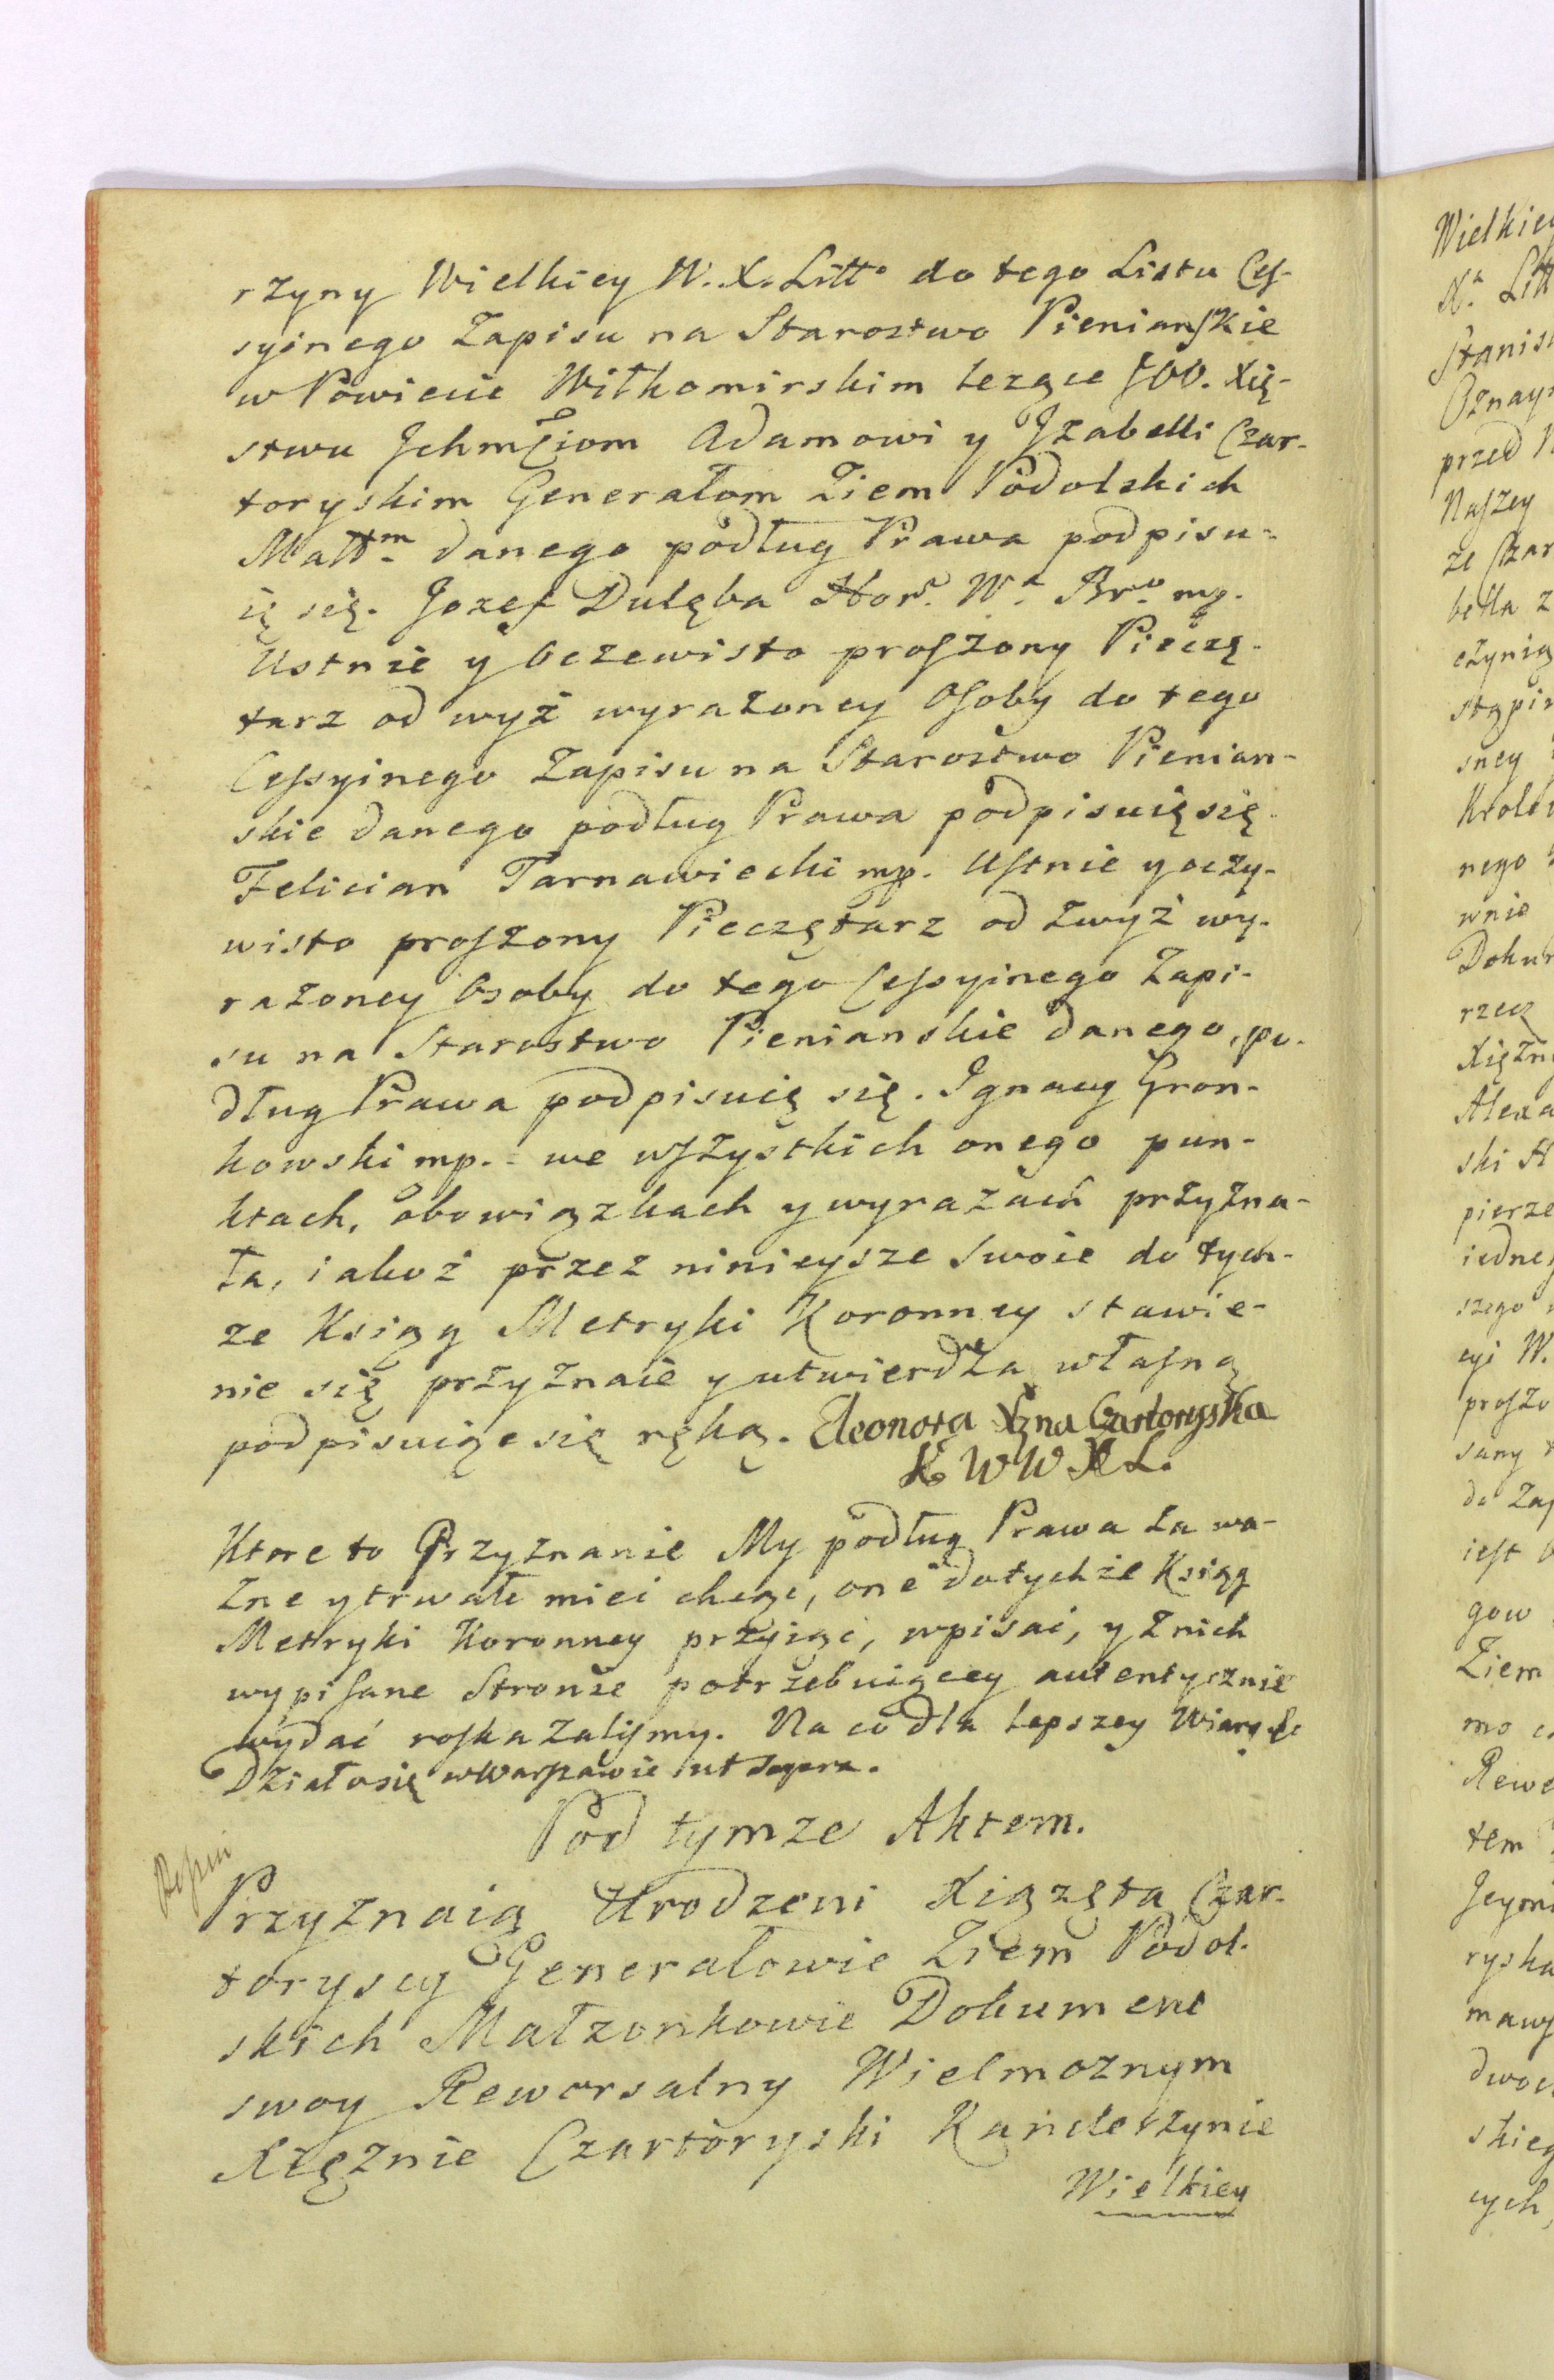 rzyny Wielkiey W. X. Litto do tego Listu Ces-
syinego Zapisu na Starostwo Pienianskie
w Powiecie Wiłkomirskim lezące JOO. Xię-
stwu Ichmciom Adamowi y Izabelli Czar-
toryskim Generałom Ziem Podolskich
Małtm danego podług Prawa podpisu-
ię się. Jozef Dulęba Hor. Wa. Bro. mp.
Ustnie y Oczewisto proszony Pieczę-
tarz od wyż wyrażoney Osoby do tego
Cessyinego Zapisu na Starostwo Pienian-
skie danego podług Prawa podpisuię się.
Felician Tarnawiecki mp. Ustnie y oczy-
wisto proszony Pieczętarz od zwyż wy-
rażoney Osoby do tego Cessyinego Zapi-
su na Starostwo Pienianskie danego, po-
dług Prawa podpisuię się. Ignacy Gron-
kowski mp. we wszystkich onego pun-
ktach, obowiązkach y wyrazach przyzna-
ła, iakoż przez ninieysze swoie do tych-
ze Ksiąg Metryki Koronney stawie-
nie się przyznaie y utwierdza własną
podpisuiąc się ręką. Eleonora Xzna Czartoryska
K W W X L.
Ktore to Przyznanie My podług Prawa za wa-
zne y trwałe mieć chcąc, one do tychże Ksiąg
Metryki Koronney przyiąć, wpisać, y z nich
wypisane Stronie potrzebuiącey autentycznie
wydać roskazaliśmy. Na co dla lepszey Wiary &c
Działo się w Warszawie ut supra.
Pod tymze Aktem.
Przyznaią Urodzeni Xiązęta Czar-
toryscy Generałowie Ziem Podol-
skich Małzonkowie Dokument
swoy Rewersalny Wielmoznym
Xiężnie Czartoryski Kanclerzynie
Wielkiey